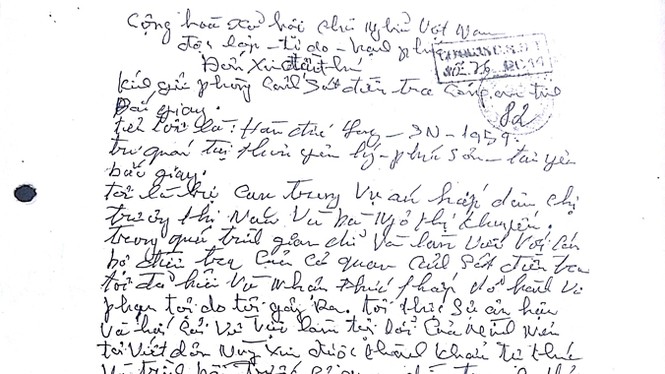 Cộng hoà xã hội chủ nghĩa Việt Nam
độc lập - tự do - hạnh phúc
Đơn xin đầu thú
kính gửi phòng cảnh sát điều tra công an tỉnh
Bắc giang.
tên tôi là: Hàn đức Long - SN - 1959.
trú quán tại thôn yên lý - phúc sơn - tân yên
bắc giang.
tôi là bị can trong vụ án hiếp dâm chị
trương thị Năm và bà ngô thị khuyến.
trong quá trình giam chỉ và làm việc với cán
bộ điều tra của cơ quan cảnh sát điều tra
tôi đã hiểu và nhận thức pháp do hành vi
phạm tội do tôi gây ra. tôi thực sự ăn hận
và hối lỗi về việc làm tội lỗi của mình nên
tôi viết đơn này xin được thành khẩn tự thú
82